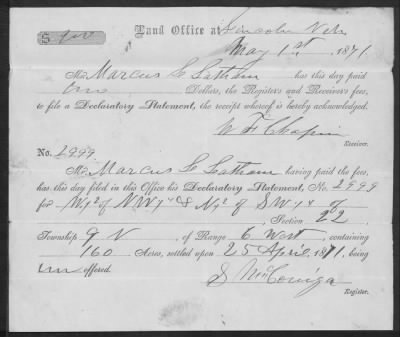 Land Office at Lincoln Neb
May 1st 1871.
Mr. Marcus L Latham has this day paid
two Dollars, the Registers and Receivers fees,
to file a Declaratory Statement, the receipt whereof is hereby acknowledged.
W F Chapin
Receiver.
No. 2999
Mr. Marcus L Latham having paid the fees,
has this day filed in this Office his Declaratory Statement, No. 2999
for W ½ of NW ¼ & N ½ of SW ¼ of
Section 22,
Township 9 N, of Range 6 West, containing
160 Acres, settled upon 25 April, 1871, being
offered.
Register.